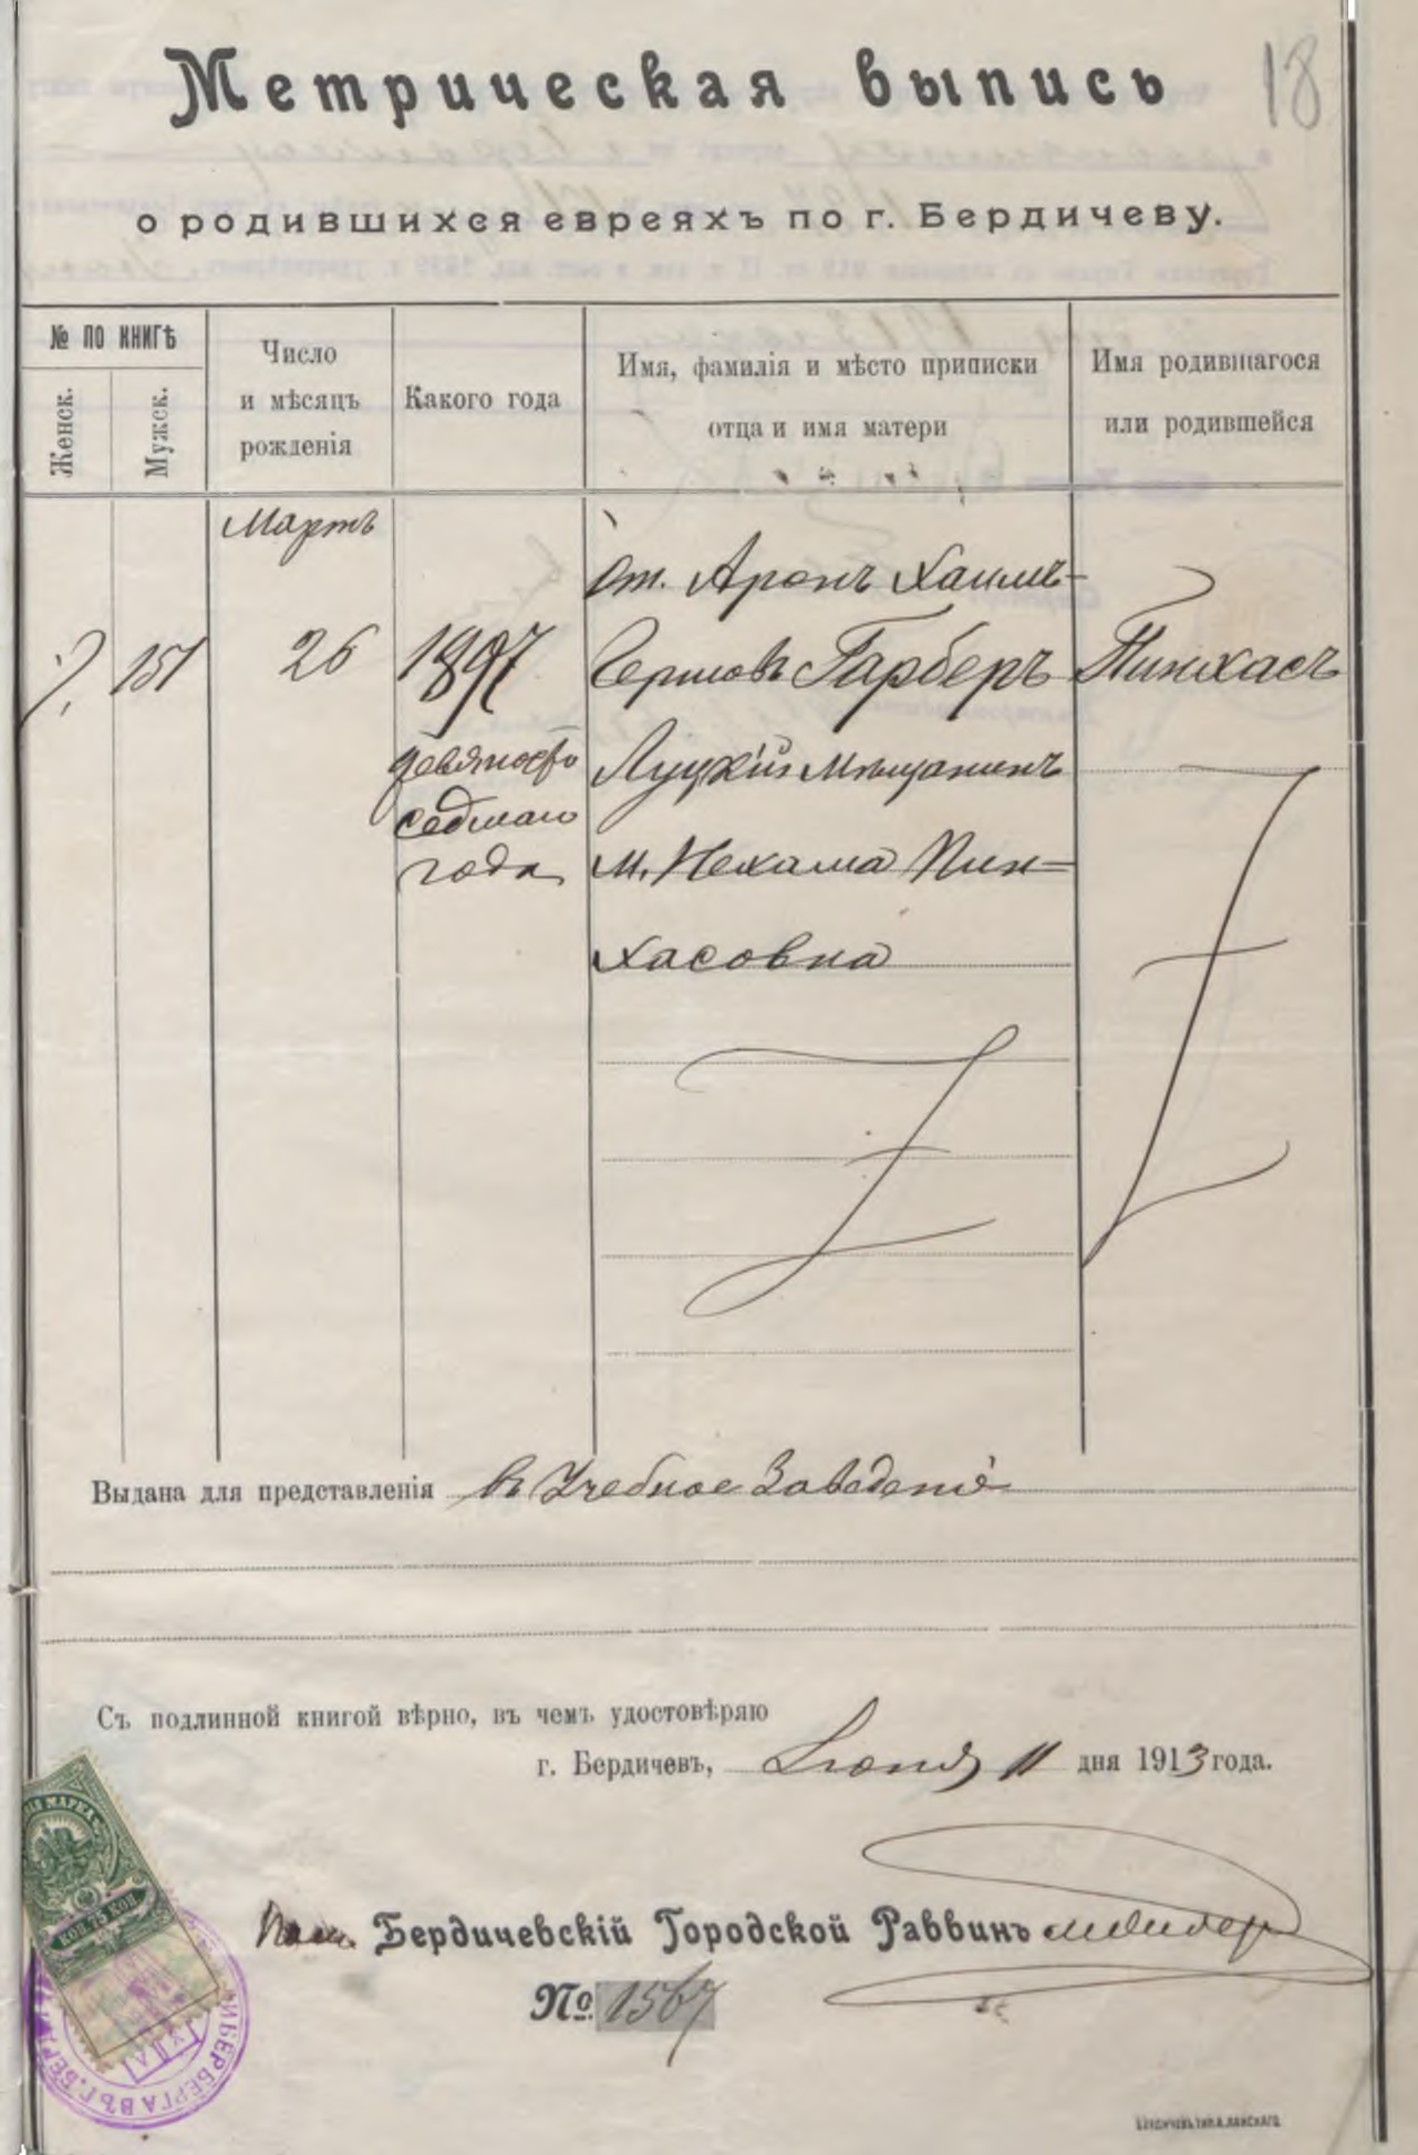 18
Метрическая выпись
о родившихся евреяхъ по г. Бердичеву.
№ ПО КНИГѢ
Женск.
Мужск.
Число
и мѣсяцъ
рожденія
Какого года
Имя, фамилія и мѣсто приписки
отца и имя матери
Имя родившагося
или родившейся
Мартъ
151
26
1897
девяносто
седмаго
года
от. Аронъ Хаимъ-
Гершовъ Гарберъ
Луцкій Мѣщанинъ
м. Нехама Пин=
хасовна
Пинхасъ
Выдана для представленія въ Учебное Заведеніе
Съ подлинной книгой вѣрно, въ чемъ удостовѣряю
г. Бердичевъ, Іюня 11 дня 1913 года.
Пом. Бердичевскій Городской Раввинъ
№ 1567
МАРКА
КОП. 75 КОП.
БЕРДИЧЕВЪ ТИП. А. ЛАНСКАГО